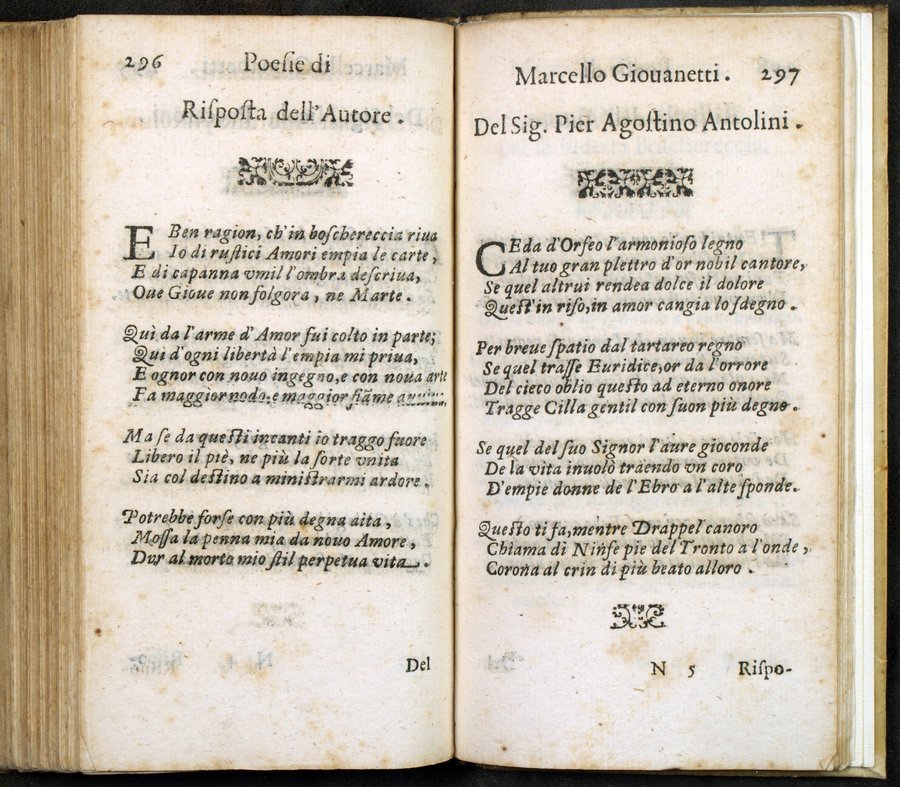 296 Poesie di
Risposta dell'Autore.
E Ben ragion, ch'in boschereccia riua
Io di rustici Amori empia le carte,
E di capanna vmil l'ombra descriua,
Oue Gioue non folgora, ne Marte.
Quì da l'arme d'Amor fui colto in parte;
Qui d'ogni libertà l'empia mi priua,
E ognor con nouo ingegno, e con noua arte
Fa maggior nodo, e maggior fiãme auuiua.
Ma se da questi incanti io traggo fuore
Libero il piè, ne più la sorte vnita
Sia col destino a ministrarmi ardore.
Potrebbe forse con più degna aita,
Mossa la penna mia da nouo Amore,
Dar al morto mio stil perpetua vita.
Del
Marcello Giouanetti. 297
Del Sig. Pier Agostino Antolini.
CEda d'Orfeo l'armonioso legno
Al tuo gran plettro d'or nobil cantore,
Se quel altrui rendea dolce il dolore
Quest'in riso, in amor cangia lo sdegno.
Per breue spatio dal tartareo regno
Se quel trasse Euridice, or da l'orrore
Del cieco oblio questo ad eterno onore
Tragge Cilla gentil con suon più degno.
Se quel del suo Signor l'aure gioconde
De la vita inuolò traendo vn coro
D'empie donne de l'Ebro a l'alte sponde.
Questo ti fa, mentre Drappel canoro
Chiama di Ninfe pie del Tronto a l'onde,
Corona al crin di più beato alloro.
N 5 Rispo-